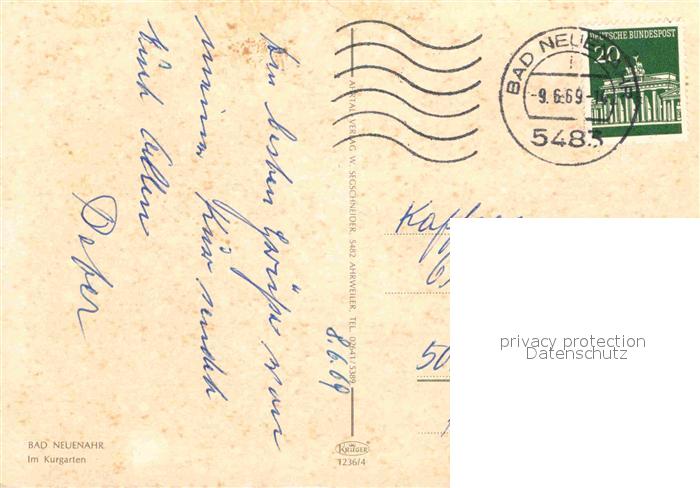 Die besten Grüße von
meiner Kur sendet
Euch Allen
8.6.69
BAD NEUENAHR
Im Kurgarten
AHRTAL VERLAG W. SEGSCHNEIDER, 5482 AHRWEILER, TEL. 02641/5389
KRÜGER
1236/4
BAD NEUEN
-9.6.69-14
5483
DEUTSCHE BUNDESPOST
20
50
privacy protection
Datenschutz